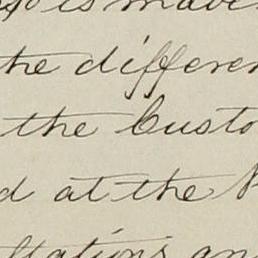 is made
the differen
the Custo
d at the
stations an